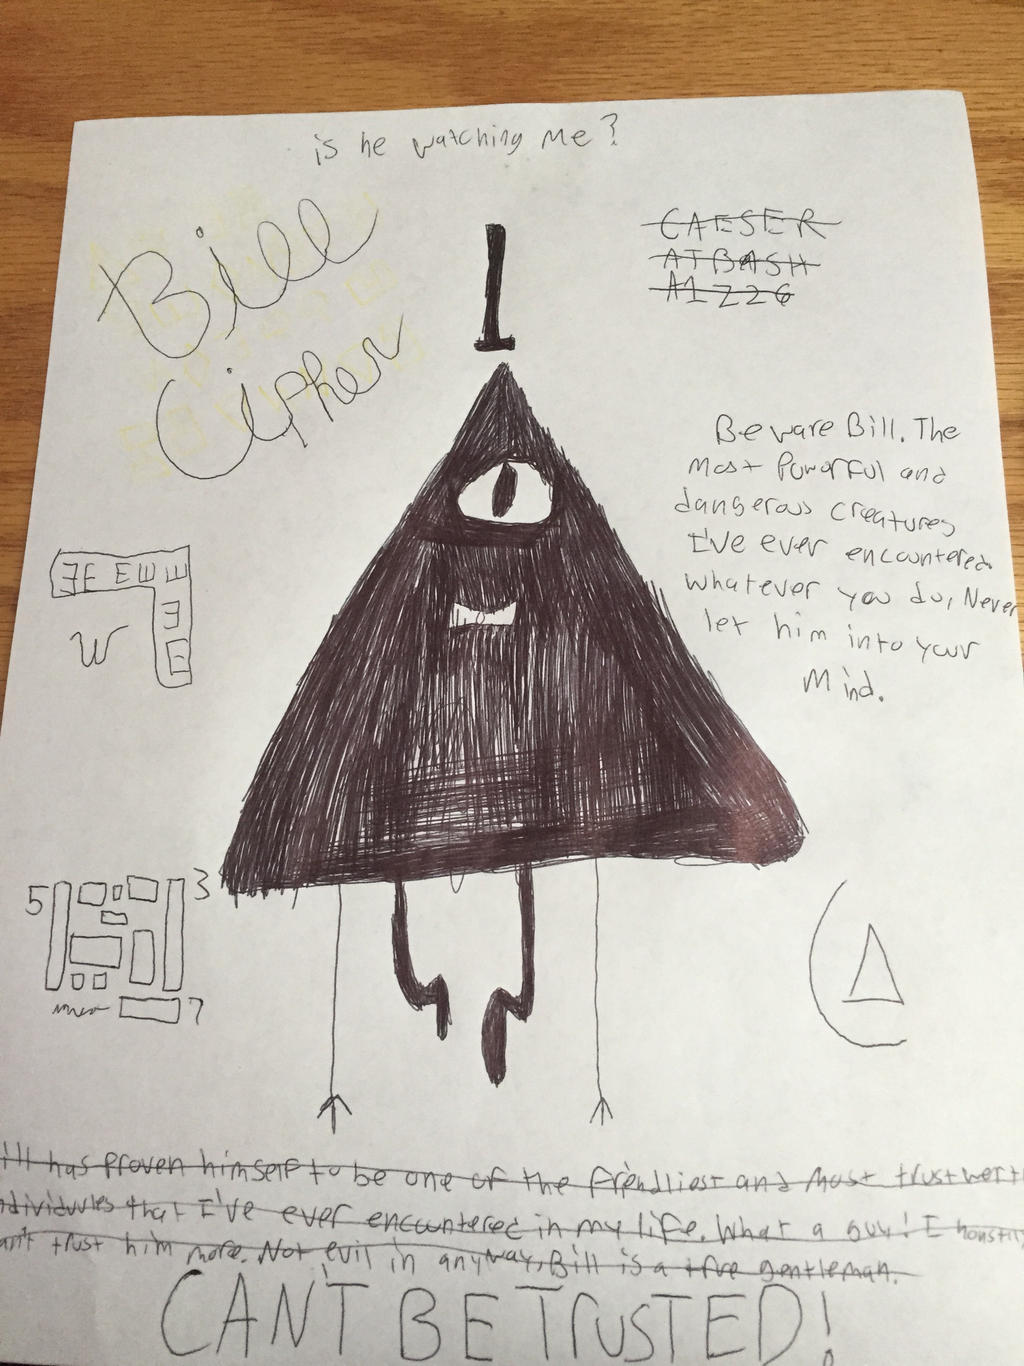 is he watching me?
Bill
Cipher
CAESER
ATBASH
A1ZZ6
Beware Bill. The
Most Powerful and
dangerous creatures
I've ever encountered.
Whatever you do, Never
let him into your
Mind.
W
5
3
7
ill has proven himself to be one of the friendliest and Most trustworth
ndividuules that I've ever encountered in my life. What a guy! I honstly
an't trust him more. Not evil in anyway, Bill is a true gentleman.
CAN'T BE TRUSTED!